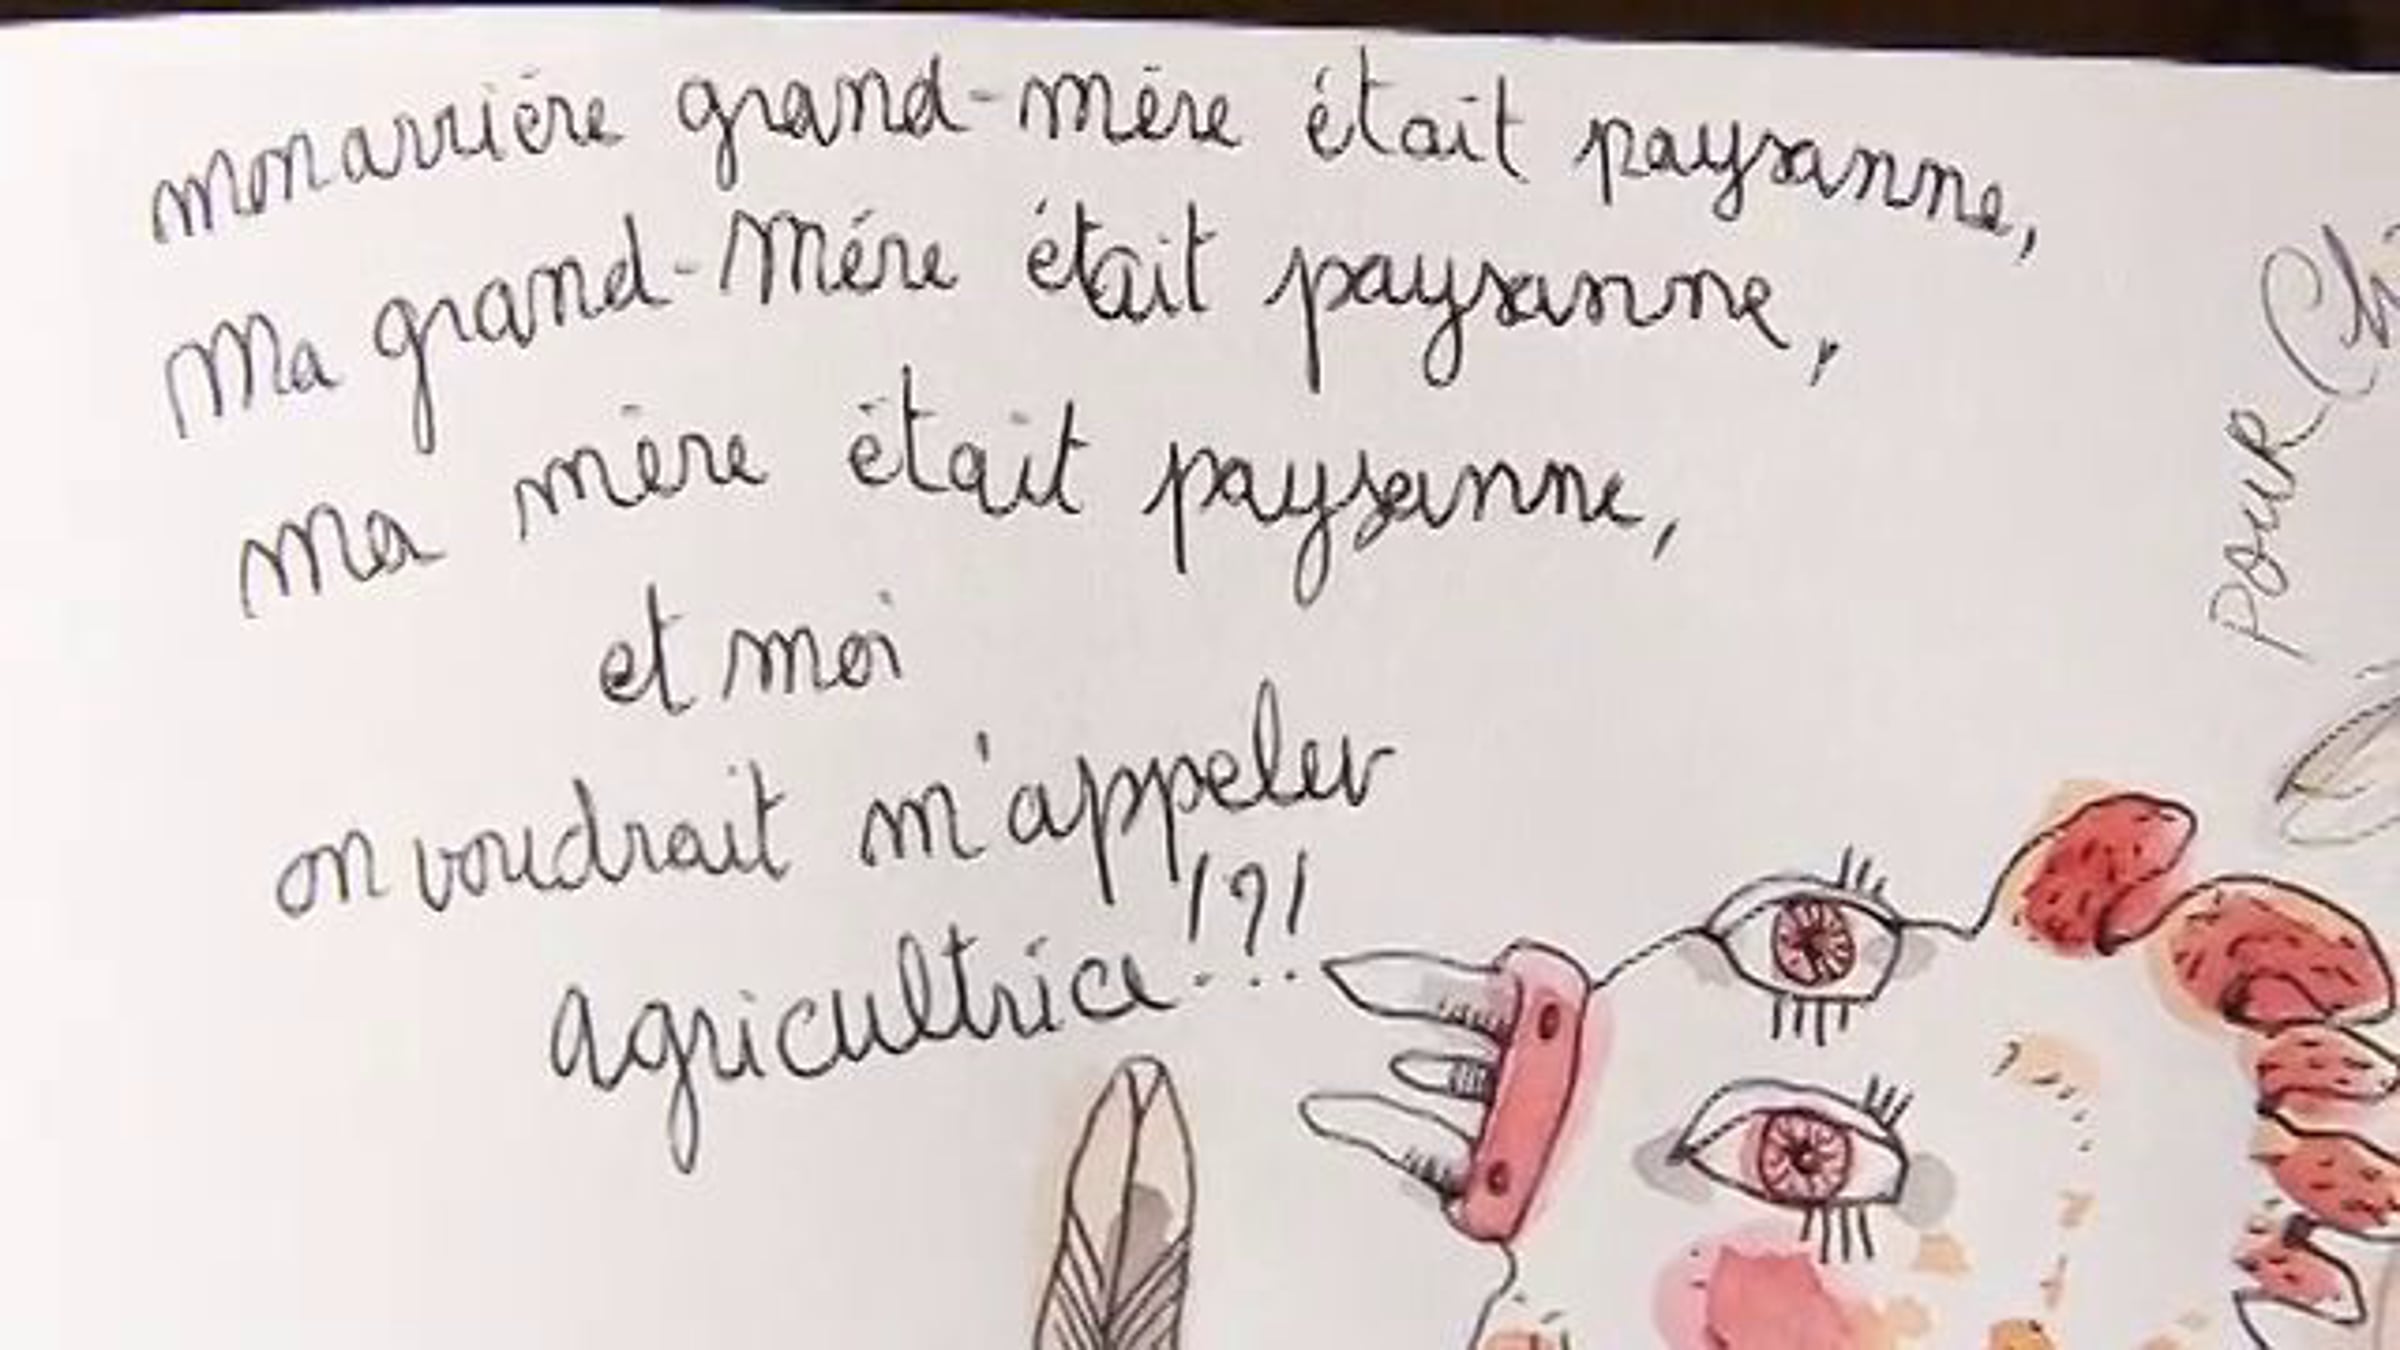 mon arrière grand-mère était paysanne,
Ma grand-Mére était paysanne,
Ma mère était paysanne,
et moi
on voudrait m'appeler
agricultrice!?!
POUR